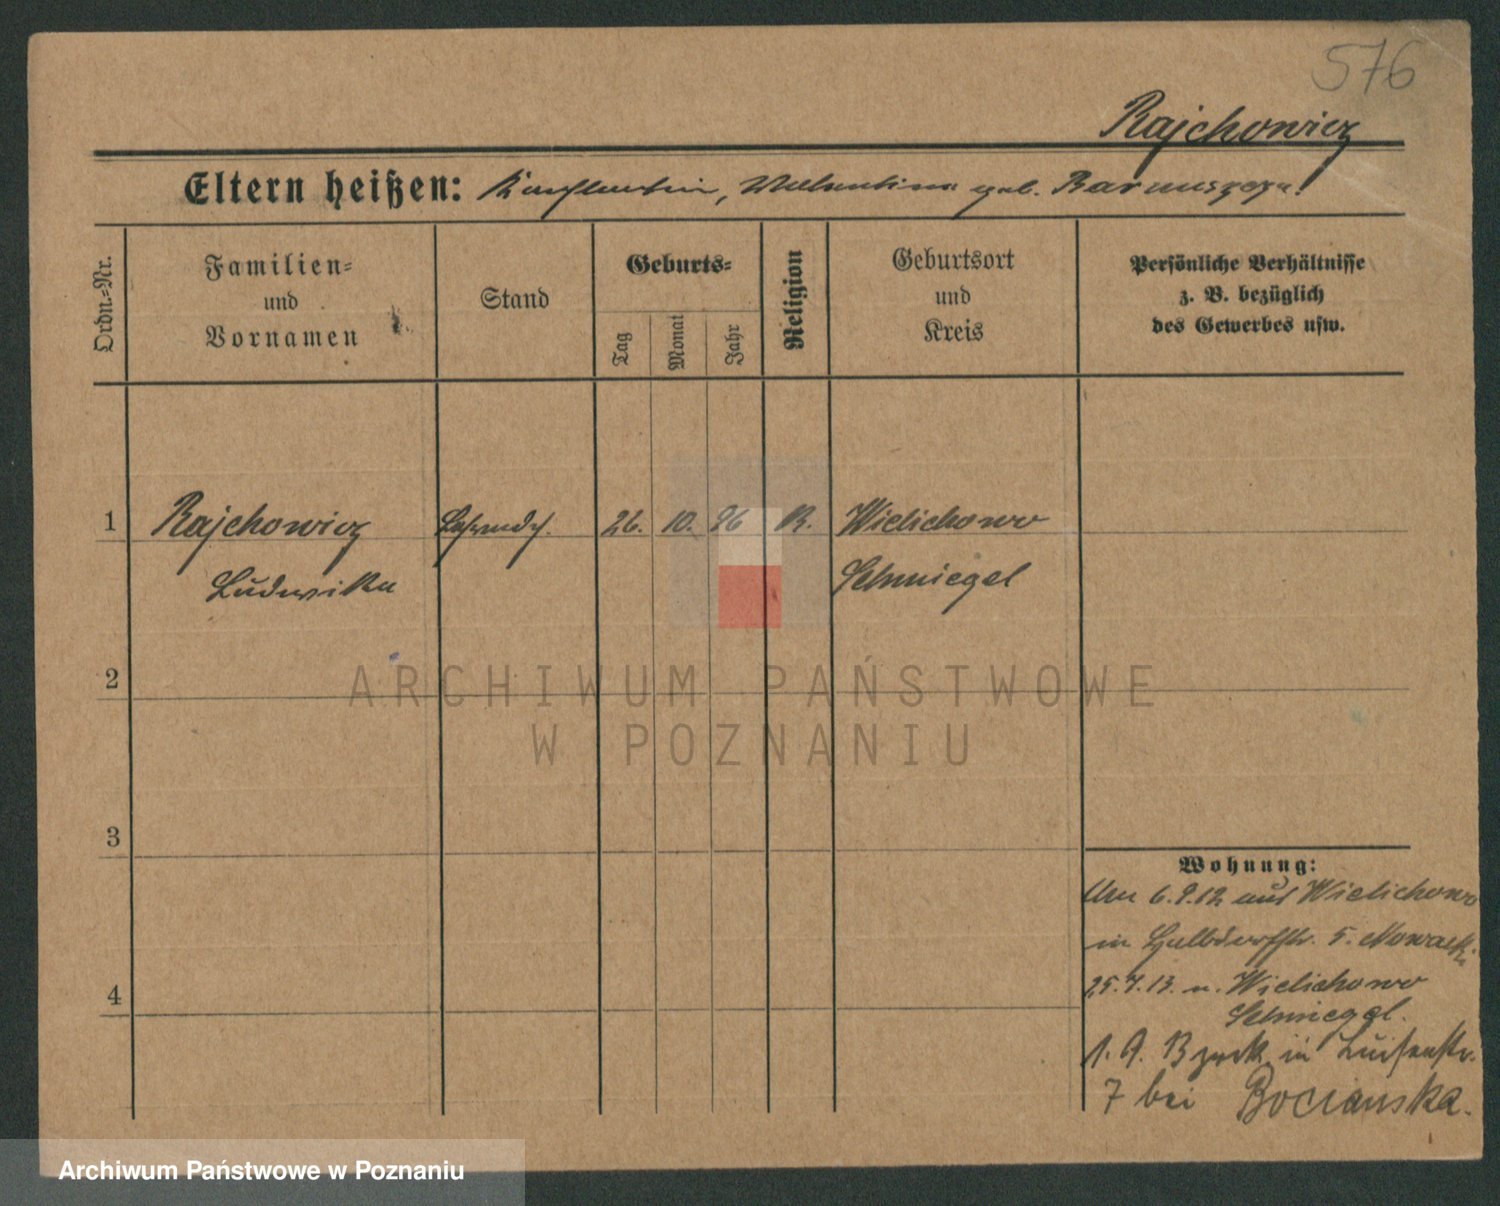 576
Rajchowicz
Eltern heißen: Konstantin, Valentina geb.
Ordn.=Nr.
Familien=
und
Vornamen
Stand
Geburts=
Tag
Monat
Jahr
Religion
Geburtsort
und
Kreis
Persönliche Verhältnisse
z. B. bezüglich
des Gewerbes usw.
1 Rajchowicz 26. 10. 96 R. Wielichowo
Ludwika Schmiegel
2
ARCHIWUM PAŃSTWOWE
W POZNANIU
3
Wohnung:
6.9.12 aus Wielichowo
in Halbdorfstr. 5. Nowacki
4
25.7.13. n. Wielichowo
Schmiegel.
1. 9. 13 zurk. in Luisenstr.
7 bei Bocianska.
Archiwum Państwowe w Poznaniu